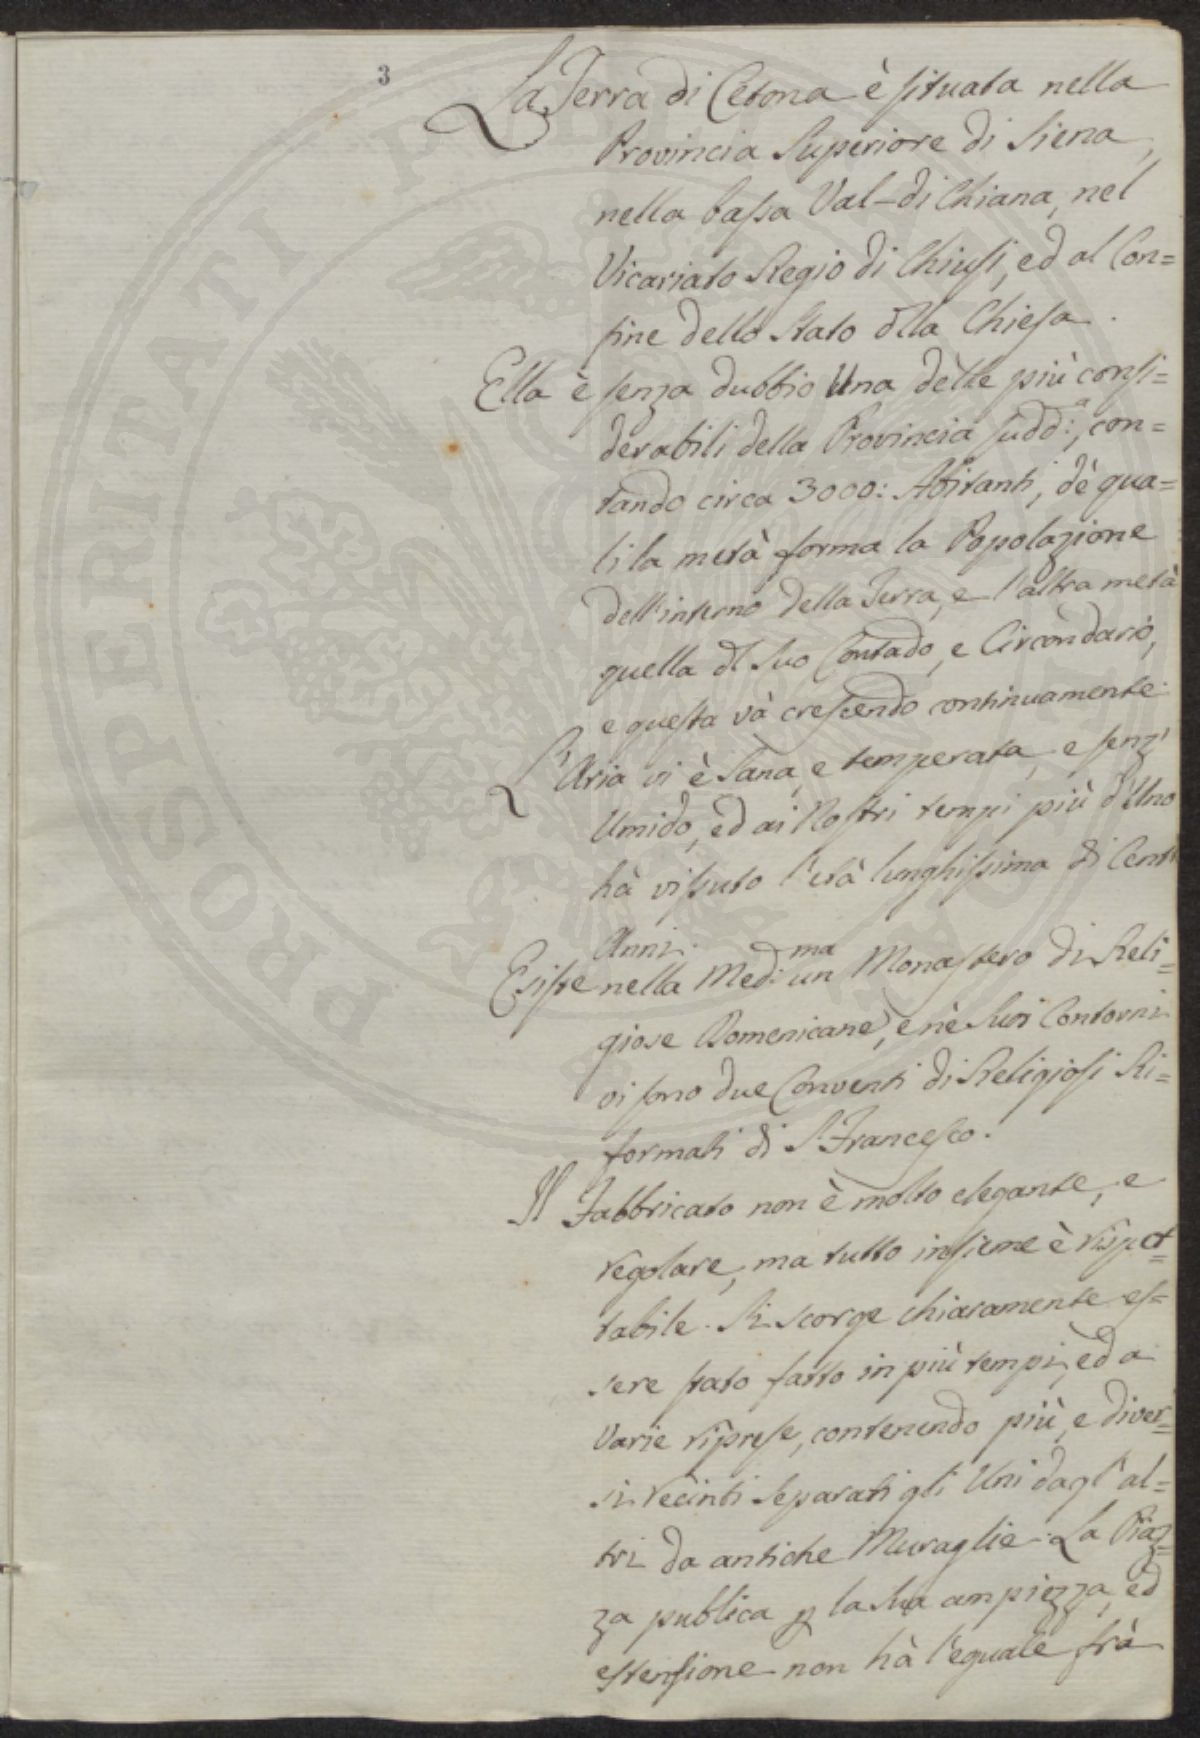 3
La Terra di Cetona è situata nella
Provincia Superiore di Siena,
nella bassa Val-di Chiana, nel
Vicariato Regio di Chiusi, ed al Con=
fine dello Stato dlla Chiesa.
Ella è senza dubbio Una delle più consi=
derabili della Provincia sudd:a, con=
tando circa 3000: Abitanti, dè qua=
li la metà forma la Popolazione
dell'interno della Terra, e l'altra metà
quella dl suo Contado, e Circondario,
e questa và crescendo continuamente.
L'Aria vi è sana, e temperata, e senz'
Umido, ed ai Nostri tempi più d'Uno
hà vissuto l'età lunghissima di Cent'
Anni.
Esiste nella Med:ma un Monastero di Reli=
giose Domenicane, e nè suoi Contorni
vi sono due Conventi di Religiosi Ri=
formati di S. Francesco.
Il Fabbricato non è molto elegante, e
regolare, ma tutto insieme è rispet=
tabile. Si scorge chiaramente es=
sere stato fatto in più tempi, ed a
Varie riprese, contenendo più, e diver=
si recinti separati gli Uni dagl'al=
tri da antiche Muraglie. La Piaz=
za publica p la sua ampiezza, ed
estensione non hà l'eguale frà
PROSPERITATI PUBLICAE